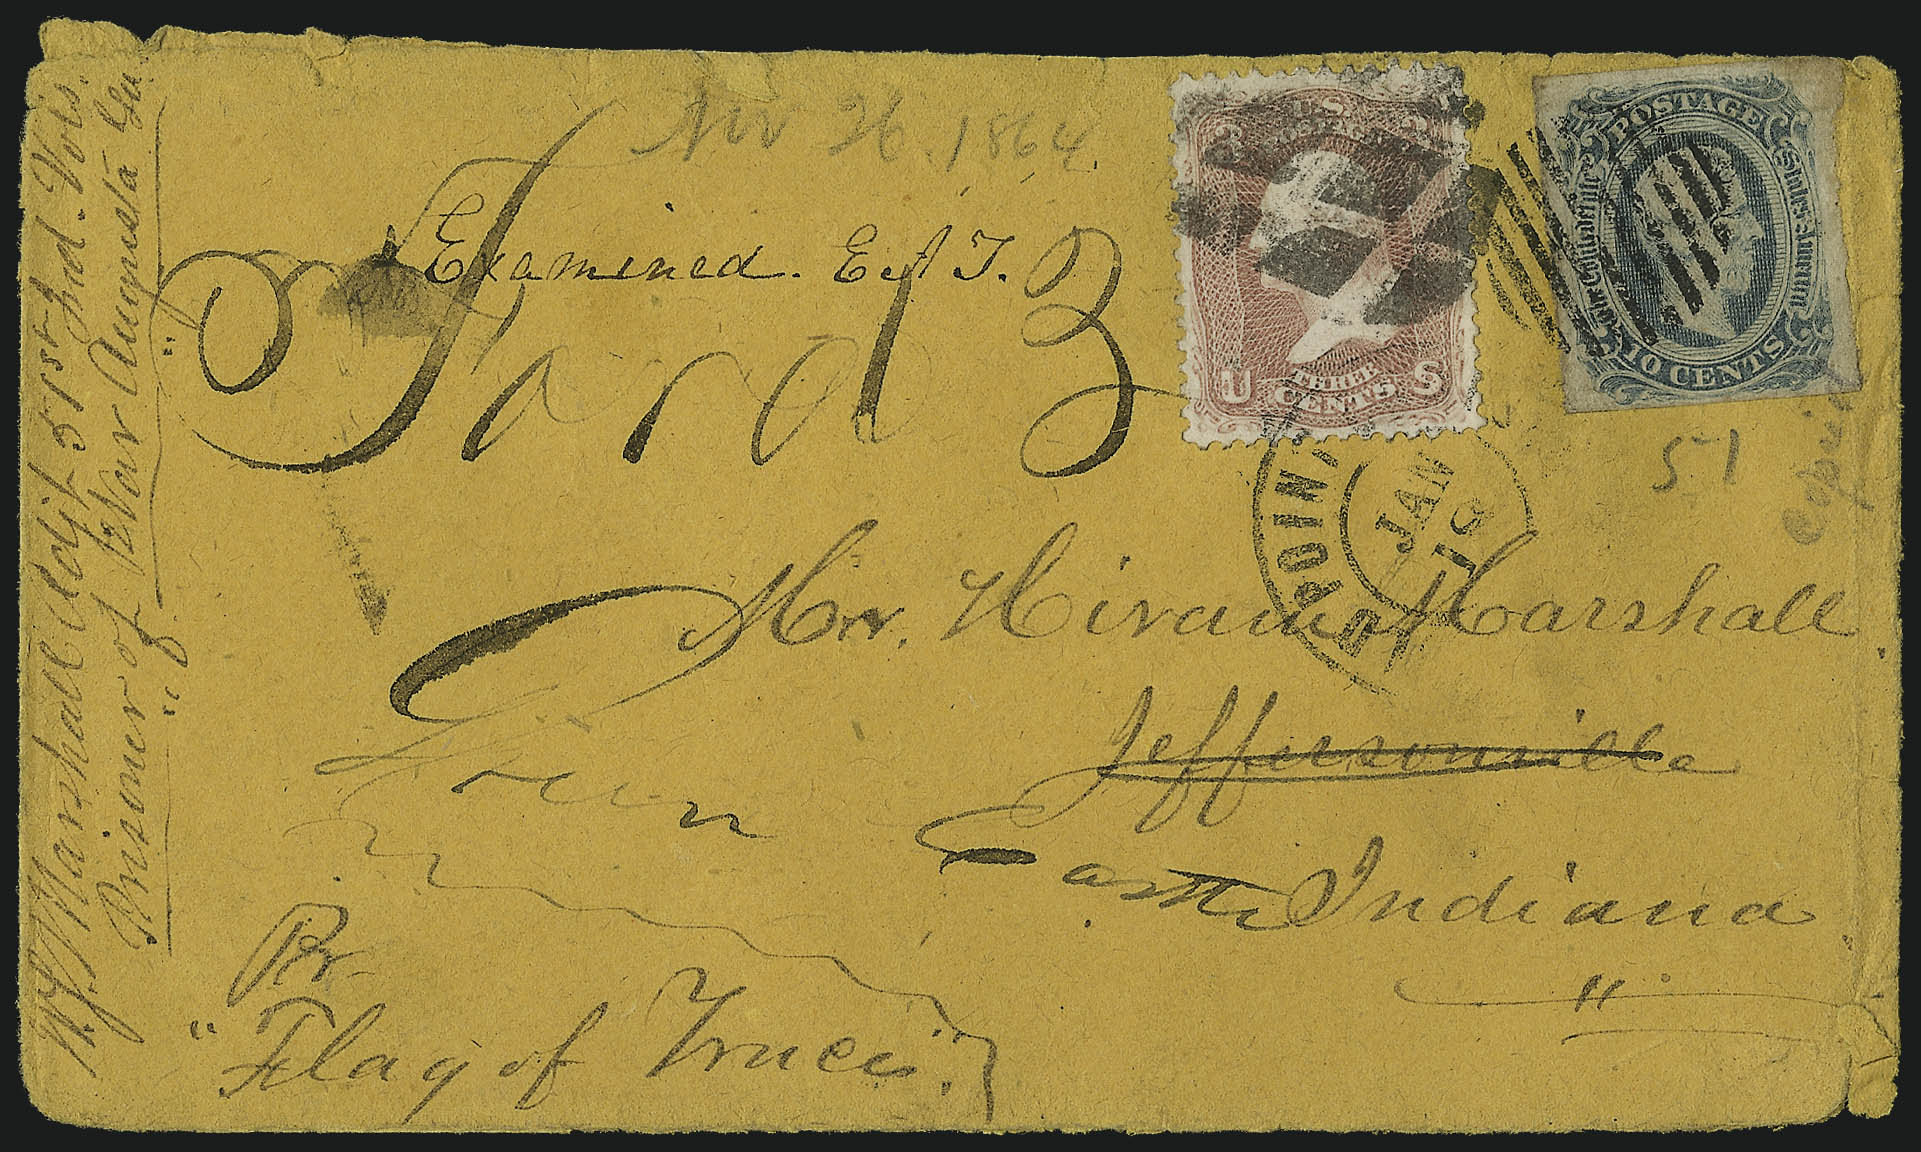 Nov 26. 1864.
Examined. E A T.
Ward 3
U.S.
POSTAGE
3
U THREE S
CENTS
POSTAGE
The Confederate States of America
10 CENTS
OLD POINT
JAN
19
51
Mr. Hiram Marshall
Jeffersonville
Indiana
W. J. Marshall Adjt 51st Ind. Vols.
Prisoner of War Augusta Ga.
Pr.
"Flag of Truce".